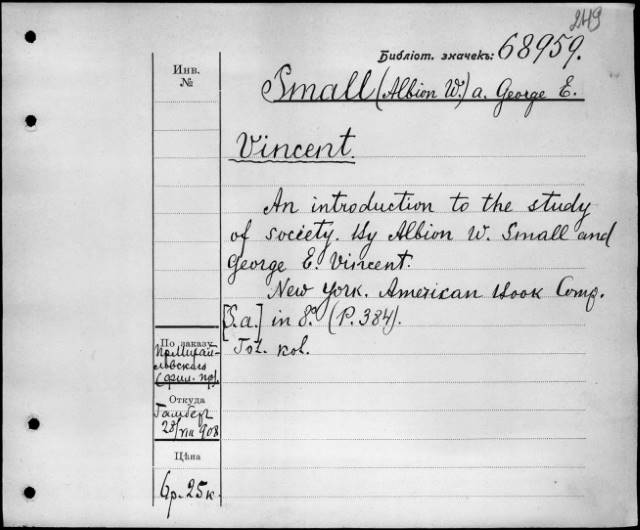 249
Библіот. значекъ: 68959.
Инв.
№
Small (Albion W.) a. George E.
Vincent.
An introduction to the study
of society. By Albion W. Small and
George E. Vincent.
New York. American Book Comp.
[S.a.] in 8º. (P. 384).
Tol. kol.
По заказу
Пр. Михай-
ловскаго
(фил. пр).
Откуда
Гамбер
28/VIII 908
Цѣна
6р. 25к.